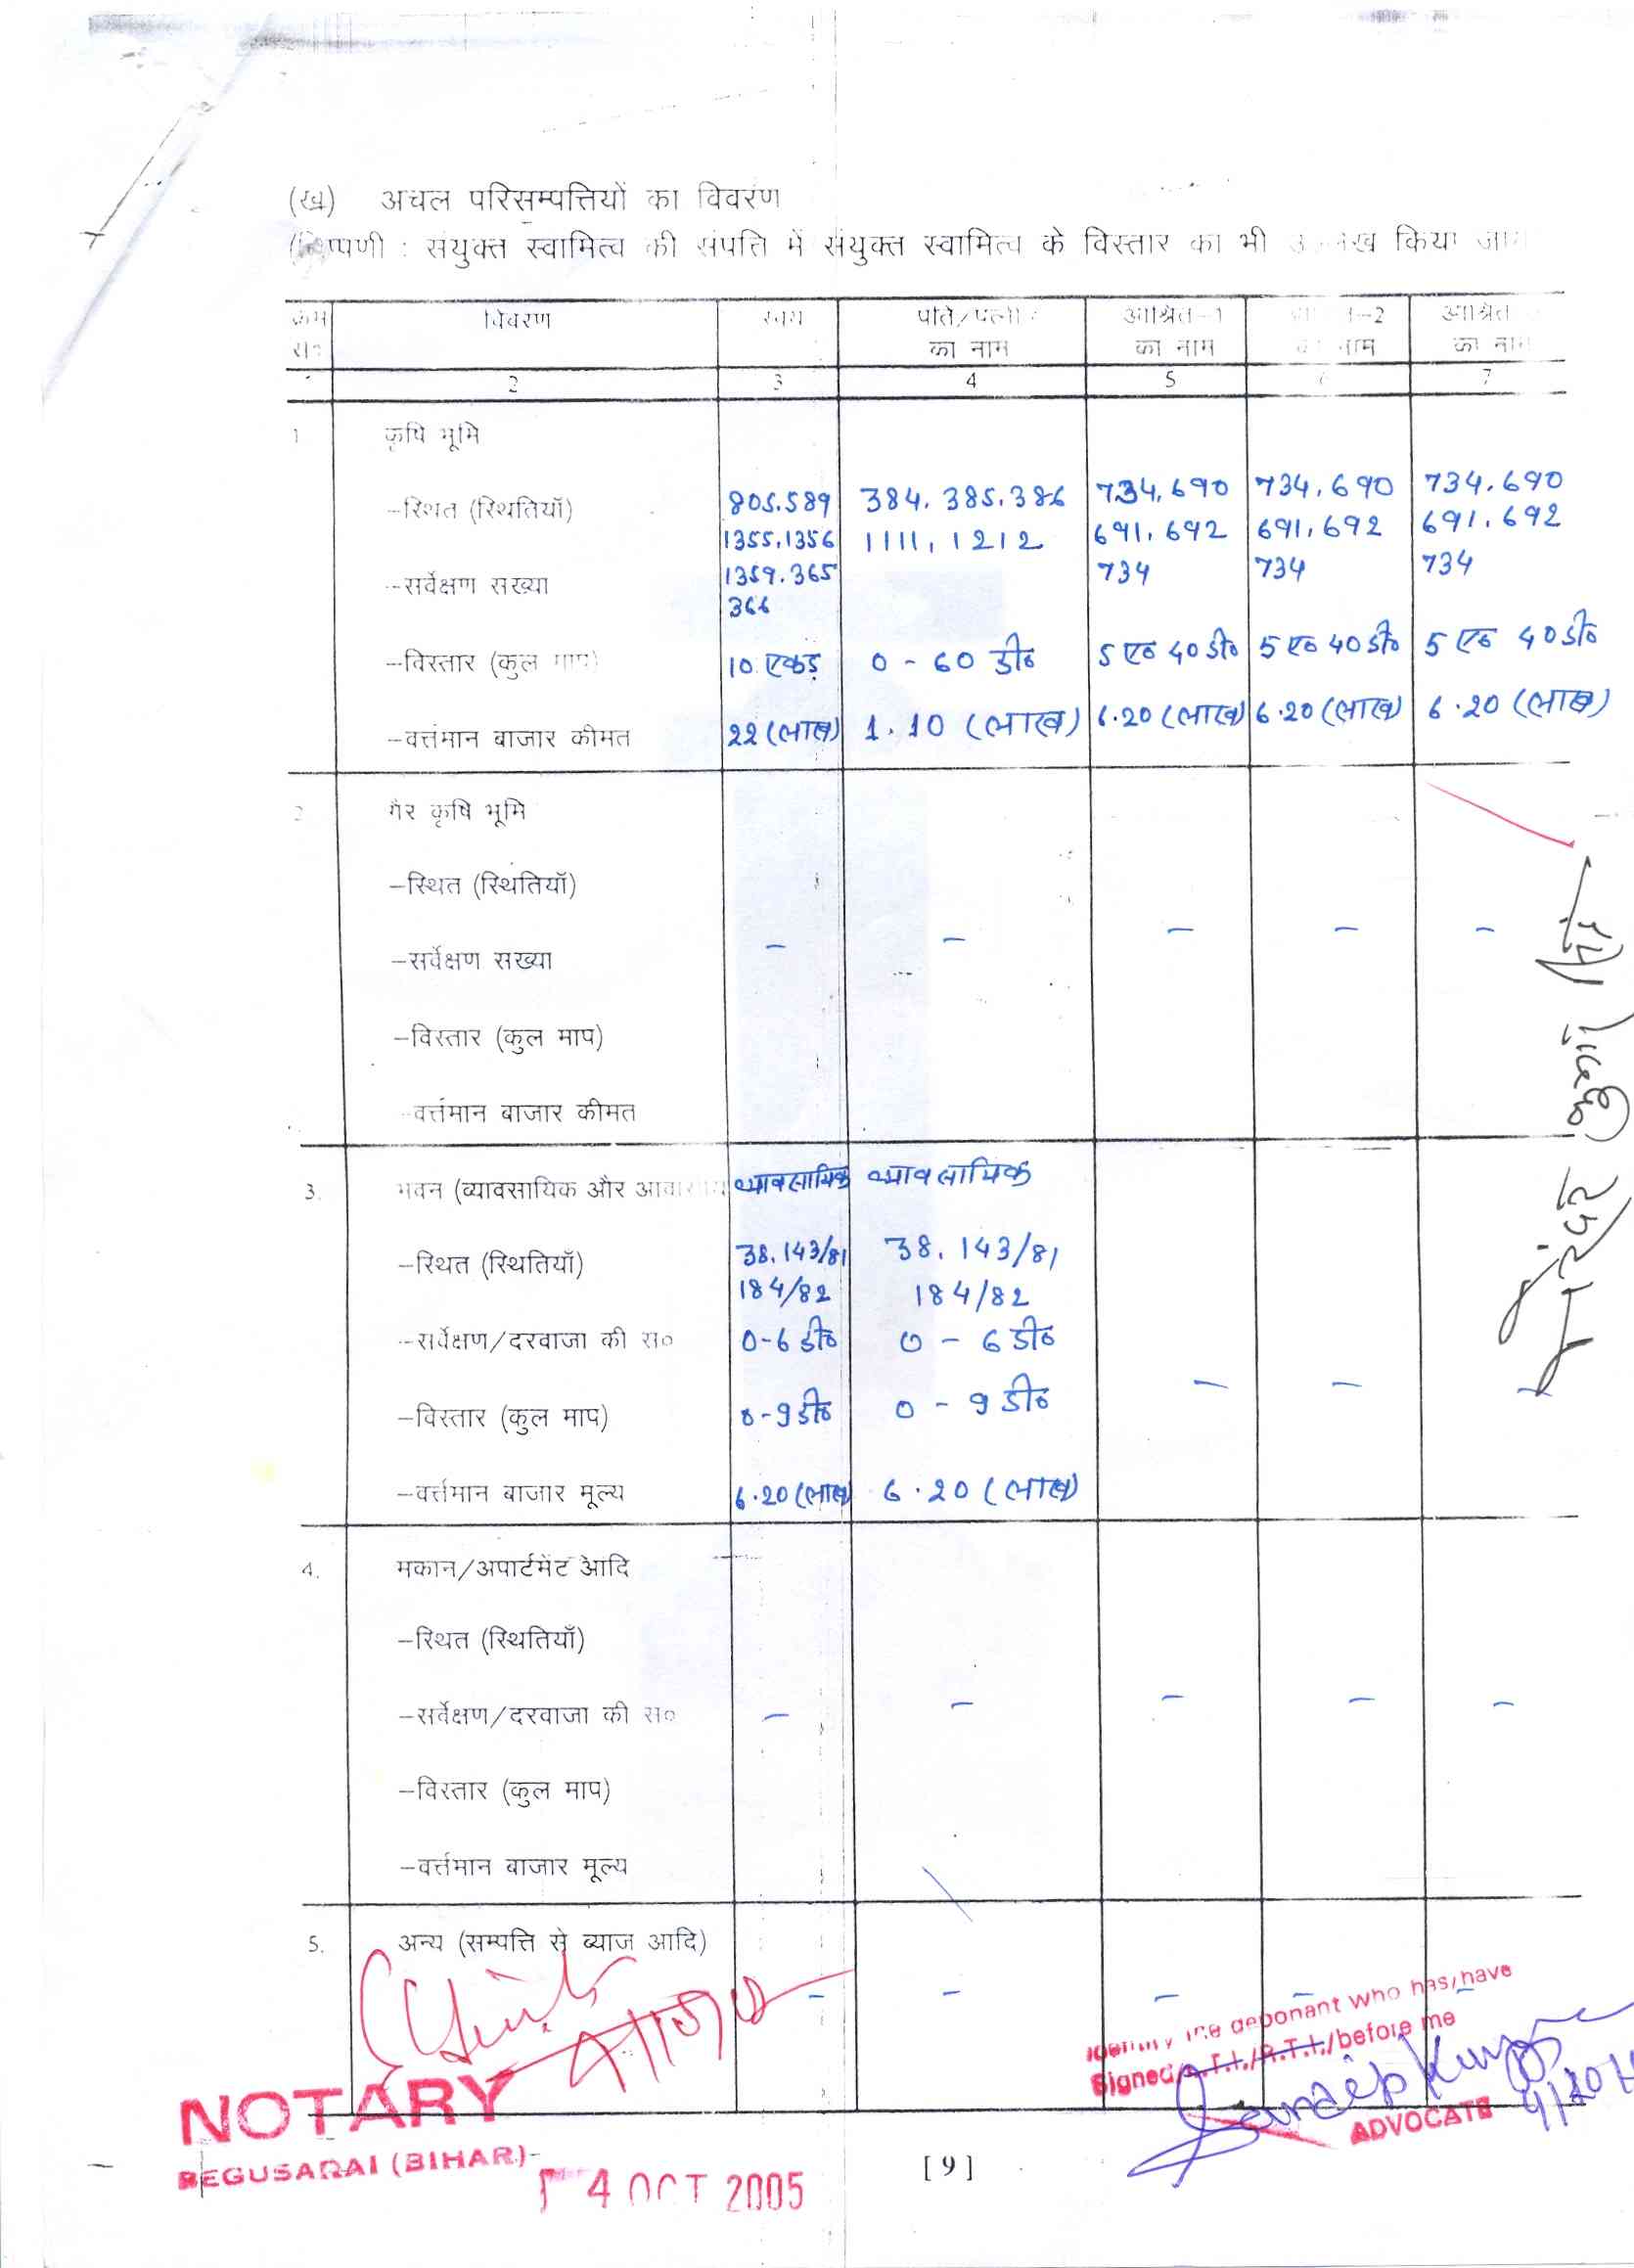 (ख) अचल परिसम्पत्तियों का विवरण
संयुक्त स्वामित्व की संपत्ति में संयुक्त स्वामित्व के विस्तार का भी किया
क्रम विवरण स्वयं पति/पत्नी आश्रित-1 -2 आश्रित
सं० का नाम का नाम नाम का नाम
1 2 3 4 5 6 7
1 कृषि भूमि
-स्थित (स्थितियाँ) 805.589 384. 385. 386 734,690 734,690 734.690
1355.1356 1111, 1212 691,692 691,692 691.692
-सर्वेक्षण संख्या 1359.365 734 734 734
366
-विस्तार (कुल माप) 10 एकड़ 0 - 60 डी० 5 ए० 40 डी० 5 ए० 40 डी० 5 ए० 40 डी०
-वर्त्तमान बाजार कीमत 22 (लाख) 1.10 (लाख) 6.20 (लाख) 6.20 (लाख) 6.20 (लाख)
2 गैर कृषि भूमि
-स्थित (स्थितियाँ)
-सर्वेक्षण संख्या - - - - -
-विस्तार (कुल माप)
-वर्त्तमान बाजार कीमत
3. भवन (व्यावसायिक और व्यावसायिक व्यावसायिक
-स्थित (स्थितियाँ) 38.143/81 38. 143/81
184/82 184/82
-सर्वेक्षण/दरवाजा की सं० 0-6 डी० 0 - 6 डी०
-विस्तार (कुल माप) 0-9 डी० 0 - 9 डी० - - -
-वर्त्तमान बाजार मूल्य 6.20 (लाख) 6.20 (लाख)
4. मकान/अपार्टमेंट आदि
-स्थित (स्थितियाँ)
-सर्वेक्षण/दरवाजा की सं० - - - - -
-विस्तार (कुल माप)
-वर्त्तमान बाजार मूल्य
5. अन्य (सम्पत्ति से ब्याज आदि)
- - - - -
deponant who has/have
Signed/L.T.I./R.T.I./before me
Sandip Kumar
ADVOCATE
NOTARY
BEGUSARAI (BIHAR)
4 OCT 2005
[9]